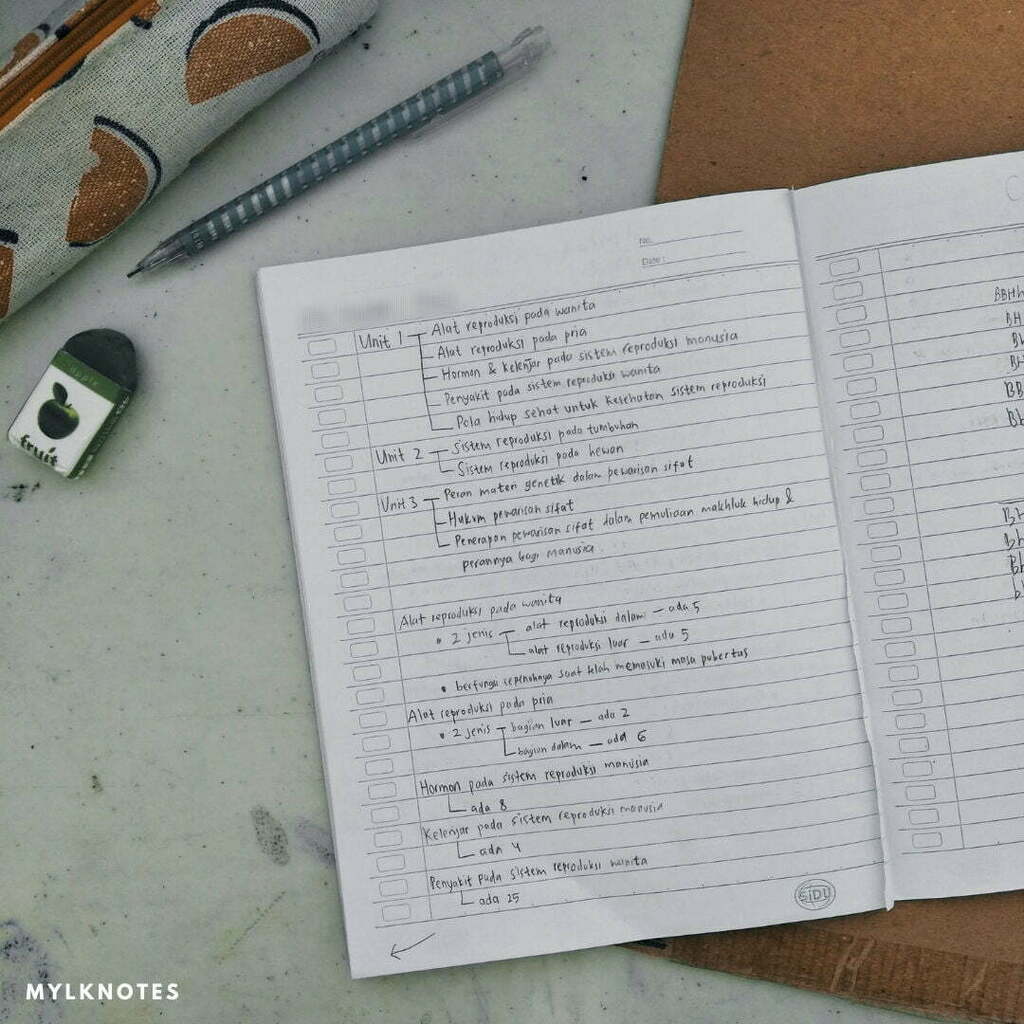 No.
Date:
Unit 1 Alat reproduksi pada wanita
Alat reproduksi pada pria
Hormon & Kelenjar pada sistem reproduksi manusia
Penyakit pada sistem reproduksi wanita
Pola hidup sehat untuk kesehatan sistem reproduksi
Unit 2 Sistem reproduksi pada tumbuhan
Sistem reproduksi pada hewan
Unit 3 Peran materi genetik dalam pewarisan sifat
Hukum pewarisan sifat
Penerapan pewarisan sifat dalam pemuliaan makhluk hidup &
perannya bagi manusia
Alat reproduksi pada wanita
• 2 jenis alat reproduksi dalam — ada 5
alat reproduksi luar — ada 5
• berfungsi sepenuhnya saat telah memasuki masa pubertas
Alat reproduksi pada pria
• 2 jenis bagian luar — ada 2
bagian dalam — ada 6
Hormon pada sistem reproduksi manusia
ada 8
Kelenjar pada sistem reproduksi manusia
ada 4
Penyakit pada sistem reproduksi wanita
ada 25
SiDU
apple
fruit
MYLKNOTES